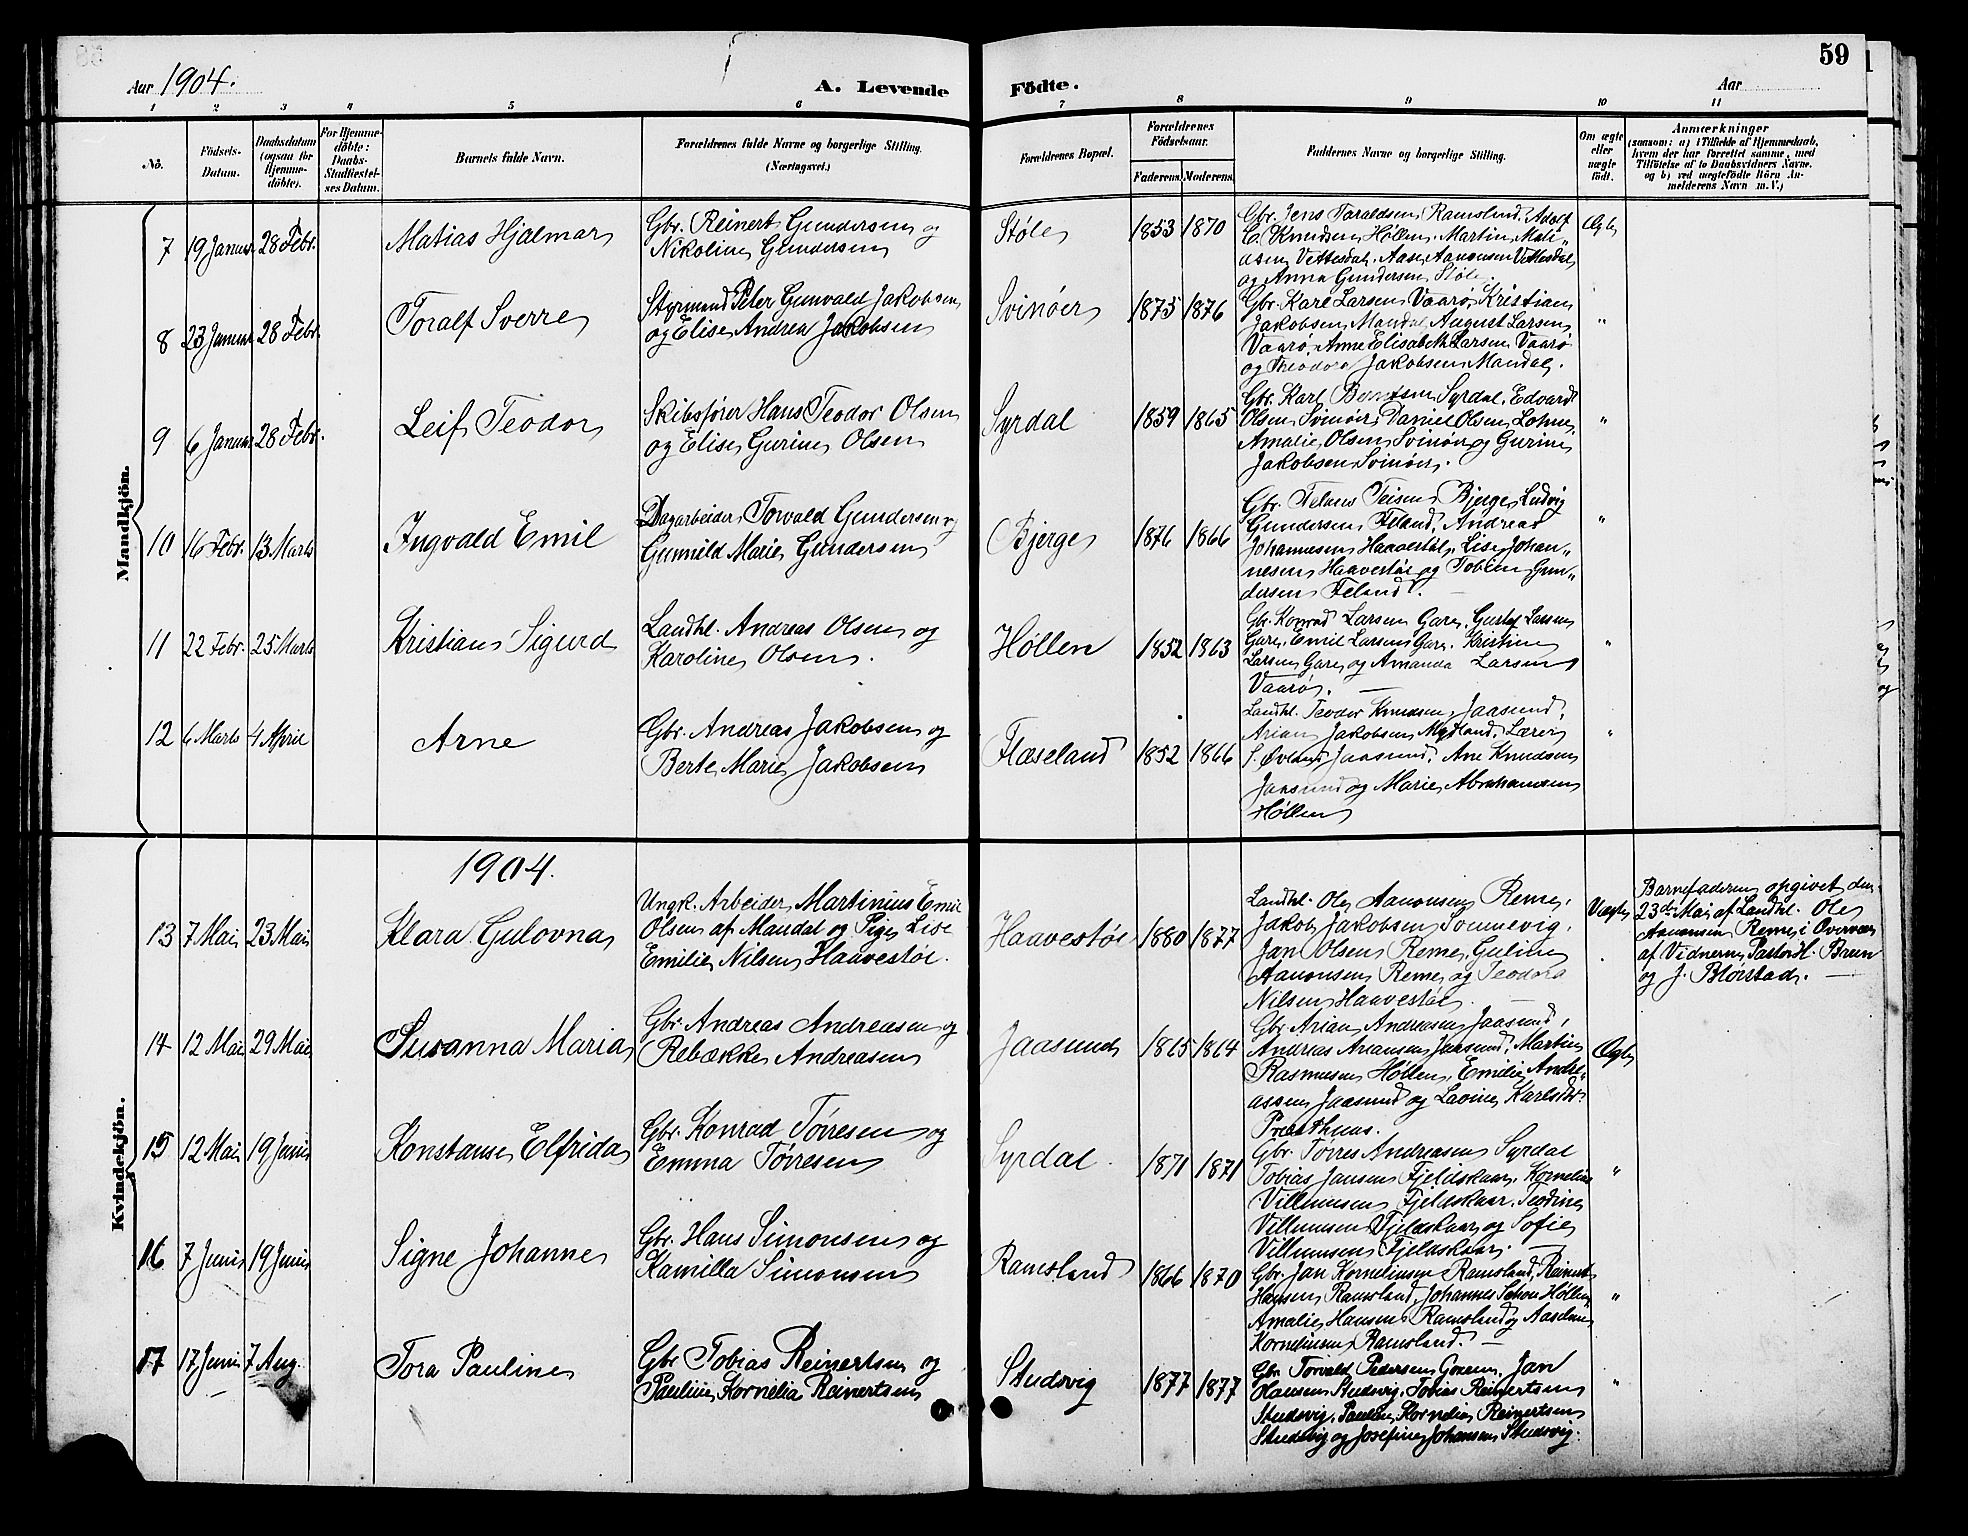 59
Aar 1904.
A. Levende Födte.
Aar
1 2 3 4 5 6 7 8 9 10 11
No.
Födsels-Datum.
Daabsdatum (ogsaa for Hjemme-döbte).
For Hjemme-döbte: Daabs-Stadfæstel-ses Datum.
Barnets fulde Navn.
Forældrenes fulde Navne og borgerlige Stilling. (Næringsvei.)
Forældrenes Bopæl.
Forældrenes Födselsaar.
Faderens. Moderens.
Faddernes Navne og borgerlige Stilling.
Om ægte eller uægte födt.
Anmærkninger
(saasom: a) i Tilfælde af Hjemmedaab,
hvem der har forrettet samme, med
Tilföielse af to Daabsvidners Navne.
og b) ved uægtefödte Börn An-
melderens Navn m. V.)
Mandkjön.
7 19 Januar 28 Febr. Matias Hjalmar
Gbr. Reinert Gundersen og
Nikoline Gundersen
Støle 1853 1870
Gbr. Jens Taraldsen Ramsland, Adolf
C. Knudsen Høllen, Martin Mati-
dsen Vettesdal, Aase Aanonsen Vettesdal
og Anna Gundersen Støle.
Ægte
8 23 Januar 28 Febr. Toralf Sverre
Styrmand Peter Gunvald Jakobsen
og Elise Andrea Jakobsen
Svinøer 1875 1876
Gbr. Karl Larsen Vaarø, Kristian
Jakobsen Mandal, August Larsen
Vaarø, Anne Elisabeth Larsen Vaarø
og Theodora Jakobsen Mandal.
"
9 6 Januar 28 Febr. Leif Teodor
Skibsfører Hans Teodor Olsen
og Elise Gurine Olsen
Syrdal 1859 1865
Gbr. Karl Berntsen Syrdal, Edvard
Olsen Svinøer, Daniel Olsen Lohne,
Amalie Olsen Svinøer og Gurine
Jakobsen Svinøer.
"
10 16 Febr. 13 Marts Ingvald Emil
Dagarbeider Torvald Gundersen og
Gunnild Marie Gundersen
Bjerge 1876 1866
Gbr. Teisen Bjerge, Ludvig
Gundersen Feland, Andreas
Johannesen Haavestøl, Lise Johan-
nesen Haavestøl og Tobine Gun-
dersen Feland.
"
11 22 Febr. 25 Marts Kristian Sigurd
Landhl. Andreas Olsen og
Karoline Olsen.
Høllen 1852 1863
Gbr. Konrad Larsen Gare, Gustav Larsen
Gare, Emil Larsen Gare, Kristine
Larsen Gare og Amanda Larsen
Vaarø.
"
12 6 Marts 4 April Arne
Gbr. Andreas Jakobsen og
Berte Marie Jakobsen
Flæseland 1852 1866
Landhl. Teodor Knudsen Jaasund,
Arian Jakobsen Mydland, Lærer
S. Øvland Jaasund, Ane Knudsen
Jaasund og Marie Abrahamsen
Høllen
"
Kvindekjön.
1904.
13 7 Mai 23 Mai Klara Gulovna
Ungk. Arbeider Martinius Emil
Olsen af Mandal og Pige Lise
Emilie Nilsen Haavestøl.
Haavestøl 1880 1877
Landhl. Ole Aanonsen Reme,
Jakob Jakobsen Sonnevig,
Jan Olsen Reme, Guline
Aanonsen Reme og Teodora
Nilsen Haavestøl.
Uægte
Barnefaderen opgivet den
23de Mai af Landhl. Ole
Aanonsen Reme i Overvær
af Vidnerne Pastor H. Bruun
og J. Bløistad.
14 12 Mai 29 Mai Susanna Maria
Gbr. Andreas Andreasen og
Rebække Andreasen
Jaasund 1865 1864
Gbr. Arian Andreasen Jaasund,
Andreas Ariansen Jaasund, Martin
Rasmusen Høllen, Emilie Andre-
assen Jaasund og Lavine Karlsdtr.
Presthuus.
Ægte
15 12 Mai 19 Juni Konstanse Elfrida
Gbr. Konrad Tørresen og
Emma Tørresen
Syrdal. 1871 1871
Gbr. Tørres Andreasen Syrdal
Tobias Jansen Fjeldskaar, Kornelius
Villumsen Fjeldskaar, Teodine
Villumsen Fjeldskaar og Sofie
Villumsen Fjeldskaar.
"
16 7 Juni 19 Juni Signe Johanne
Gbr. Hans Simonsen og
Kamilla Simonsen
Ramsland 1866 1870
Gbr. Jan Kornelinsen Ramsland, Reinert
Hansen Ramsland, Johannes Høllen,
Amalie Hansen Ramsland og Aaselene
Kornelinsen Ramsland.
"
17 17 Juni 7 Aug. Tora Pauline
Gbr. Tobias Reinertsen og
Pauline Kornelia Reinertsen
Studsvig 1877 1877
Gbr. Torvald Pedersen Goren, Jan
Hansen Studsvig, Tobias Reinertsen
Studsvig, Pauline Kornelia Reinertsen
Studsvig og Josefine Johansen Studsvig.
"